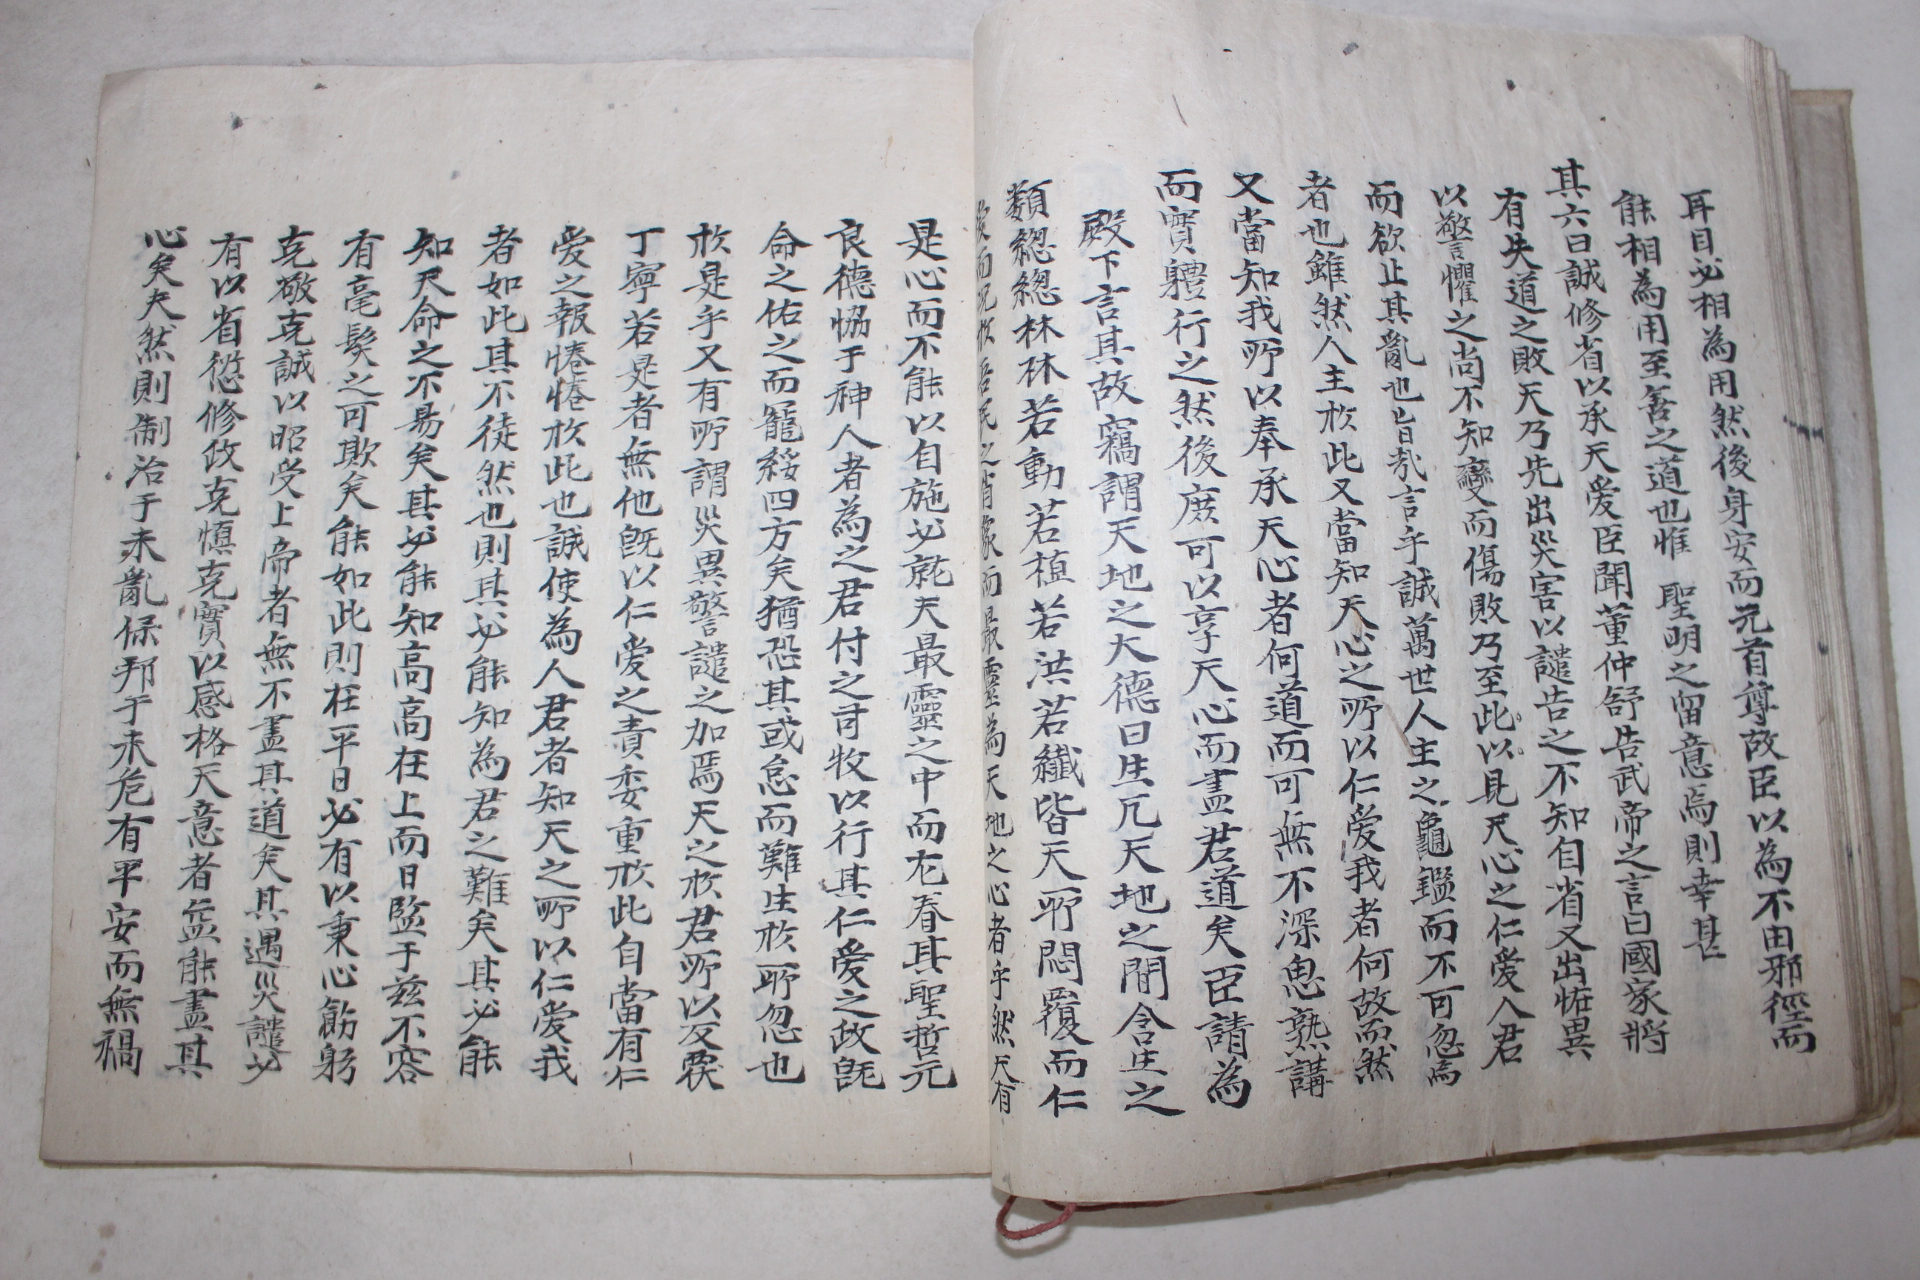 耳目必相為用然後身安而元首尊故臣以為不由邪徑而
能相為用至善之道也惟 聖明之留意焉則幸甚
其六曰誠修省以承天愛臣聞董仲舒告武帝之言曰國家將
有失道之敗天乃先出災害以譴告之不知自省又出怪異
以警懼之尚不知變而傷敗乃至此以見天心之仁愛人君
而欲止其亂也旨哉言乎誠萬世人主之龜鑑而不可忽焉
者也雖然人主於此又當知天心之所以仁愛我者何故而然
又當知我所以奉承天心者何道而可無不深思熟講
而實軆行之然後庶可以享天心而盡君道矣臣請為
殿下言其故竊謂天地之大德曰生凡天地之間含生之
類緫緫林林若動若植若洪若纖皆天所悶覆而仁
愛而況於吾民之肖像而最靈為天地之心者乎然天有
是心而不能以自施必就夫最靈之中而尤眷其聖哲元
良德恊于神人者為之君付之司牧以行其仁愛之政旣
命之佑之而寵綏四方矣猶恐其或怠而難生於所忽也
於是乎又有所謂災異警譴之加焉天之於君所以反覆
丁寧若是者無他旣以仁愛之責委重於此自當有仁
愛之報惓惓於此也誠使為人君者知天之所以仁愛我
者如此其不徒然也則其必能知為君之難矣其必能
知天命之不易矣其必能知高高在上而日監于玆不容
有毫髮之可欺矣能如此則在平日必有以秉心飭躬
克敬克誠以昭受上帝者無不盡其道矣其遇災譴必
有以省愆修政克愼克實以感格天意者益能盡其
心矣夫然則制治于未亂保邦于未危有平安而無禍